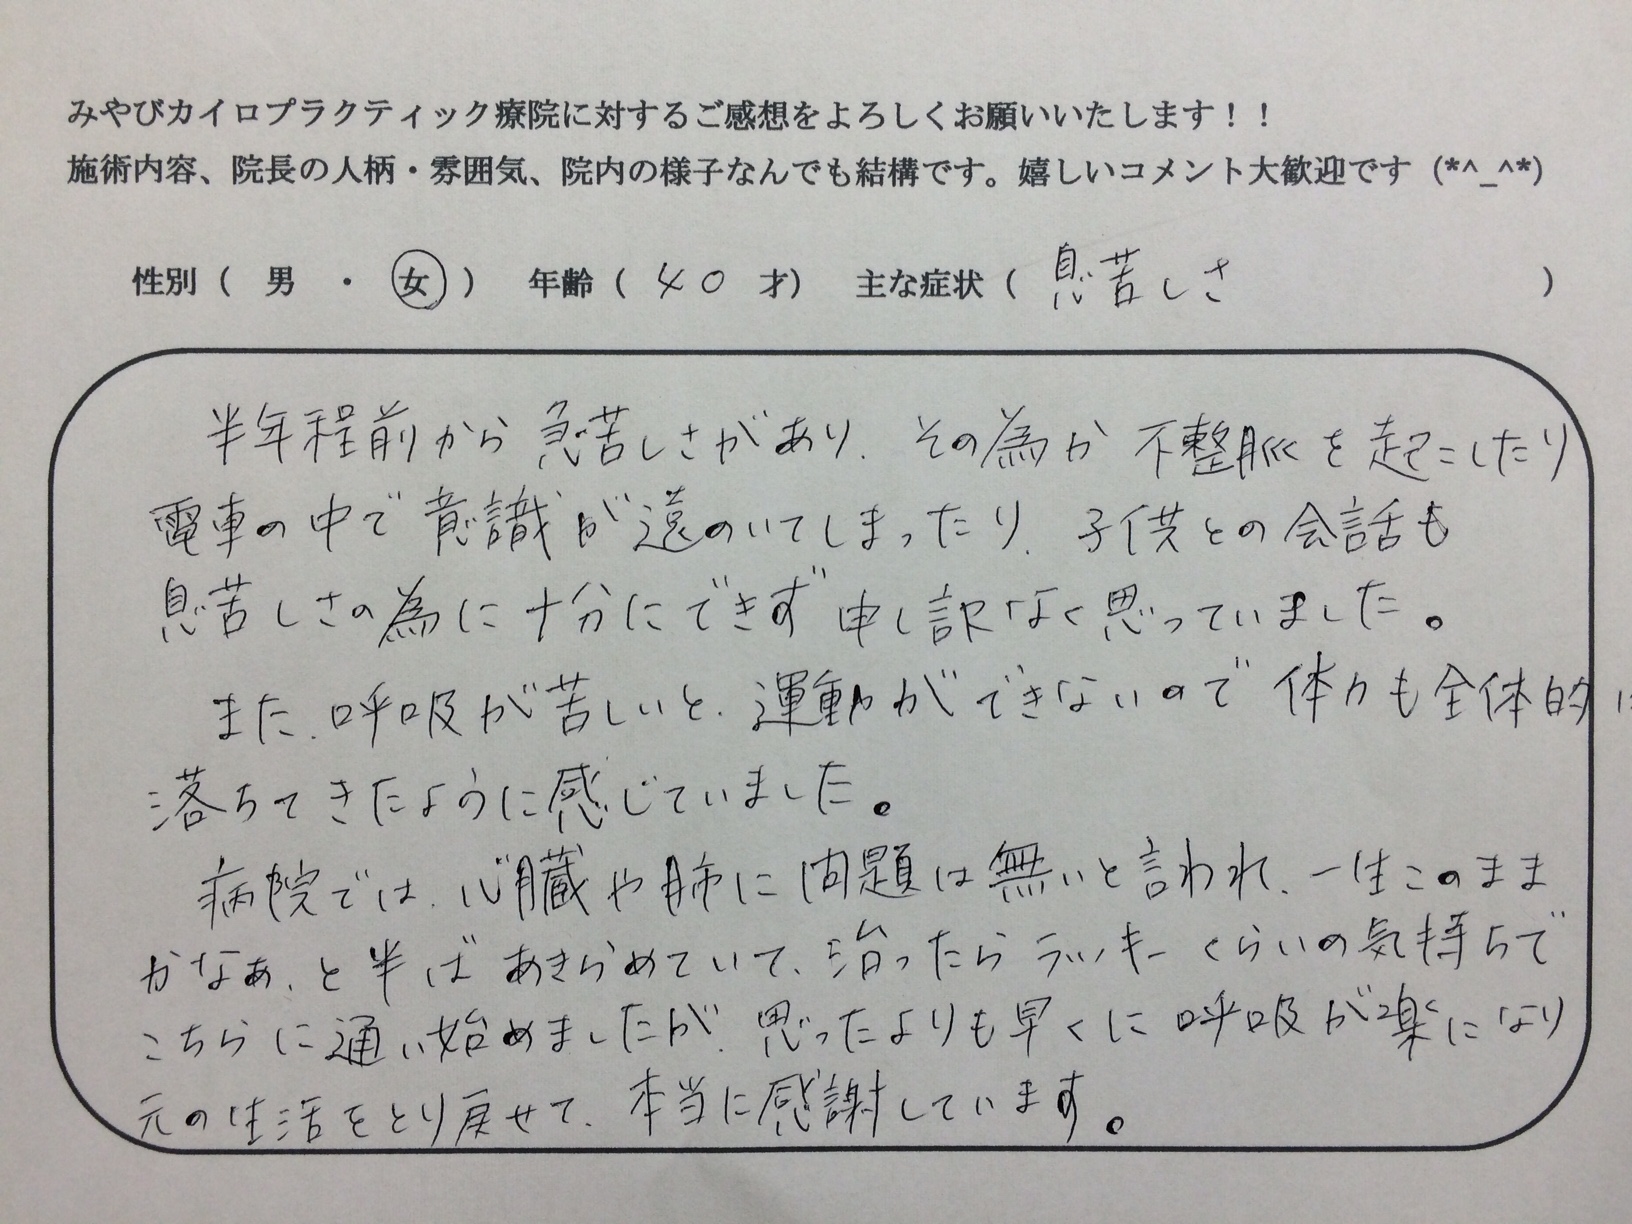 みやびカイロプラクティック療院に対するご感想をよろしくお願いいたします！！
施術内容、院長の人柄・雰囲気、院内の様子なんでも結構です。嬉しいコメント大歓迎です (*^_^*)
性別（ 男 ・ 女 ） 年齢（ 40 才） 主な症状（ 息苦しさ ）
半年程前から息苦しさがあり、その為か不整脈を起こしたり
電車の中で意識が遠のいてしまったり、子供との会話も
息苦しさの為に十分にできず申し訳なく思っていました。
また、呼吸が苦しいと、運動ができないので体力も全体的に
落ちてきたように感じていました。
病院では、心臓や肺に問題は無いと言われ、一生このまま
かなぁ、と半ばあきらめていて、治ったらラッキーくらいの気持ちで
こちらに通い始めましたが、思ったよりも早くに呼吸が楽になり
元の生活をとり戻せて、本当に感謝しています。